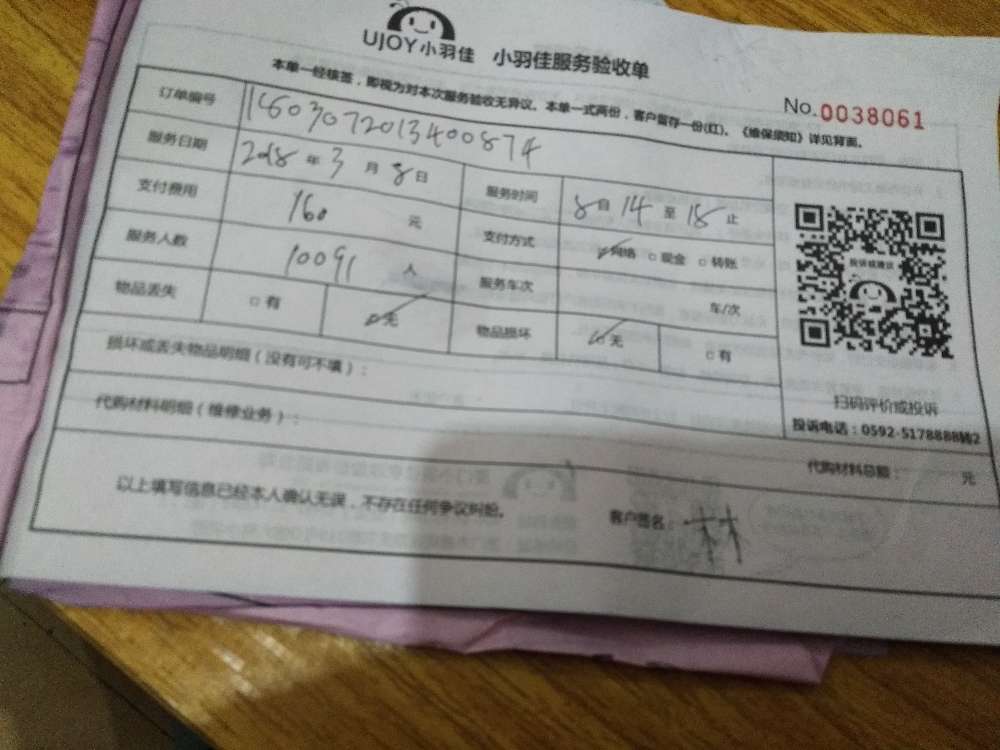 UJOY小羽佳 小羽佳服务验收单
No.0038061
本单一经核签，即视为对本次服务验收无异议。本单一式两份，客户留存一份(红)。《维保须知》详见背面。
订单编号 1803072013400874
服务日期 2018 年 3 月 8 日 服务时间 8 自 14 至 18 止
支付费用 160 元 支付方式 ☑网络 □现金 □转账
服务人数 10091 人 服务车次 车/次
物品丢失 □有 ☑无 物品损坏 ☑无 □有
损坏或丢失物品明细（没有可不填）：
投诉或建议
扫码评价或投诉
投诉电话：0592-5178888转2
代购材料明细（维修业务）：
代购材料总额： 元
以上填写信息已经本人确认无误，不存在任何争议纠纷。 客户签名： 林